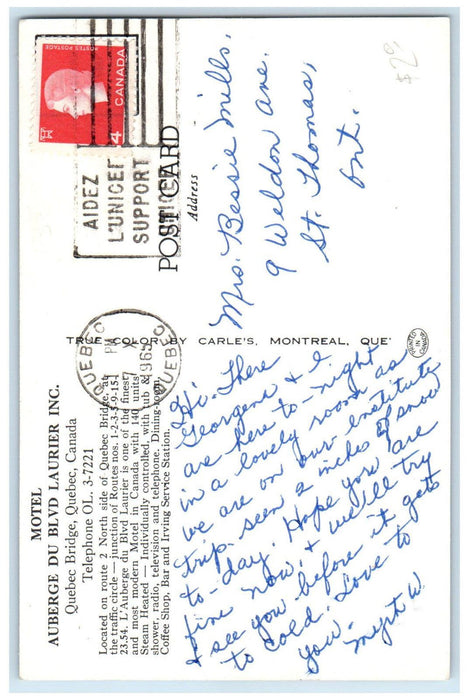 MOTEL
AUBERGE DU BLVD LAURIER INC.
Quebec Bridge, Quebec, Canada
Telephone OL. 3-7221
Located on route 2 North side of Quebec Bridge, at
the traffic circle — junction of Routes nos. 1-2-3-5-9-15-
23.54. L'Auberge du Blvd Laurier is one of the finest
and most modern Motel in Canada with 140 units
Steam Heated — Individually controlled, with tub &
shower, radio, television and telephone. Dining-room,
Coffee Shop, Bar and Irving Service Station.
Hi. There
Georgena & I
are here to-night
in a lovely room as
we are on our Institute
trip. seen 2 inches of snow
to-day. Hope you are
fine now, & we'll try
& see you before it gets
to cold. Love to
you.
Myrt W.
TRUE COLOR BY CARLE'S, MONTREAL, QUE'
PRINTED IN CANADA
QUEBEC
PM
X
1965
QUEBEC
POSTES POSTAGE
CANADA
4
AIDEZ
L'UNICEF
SUPPORT
UNICEF
POST CARD
Address
Mrs. Bessie Mills,
9 Weldon Ave.
St. Thomas,
Ont.